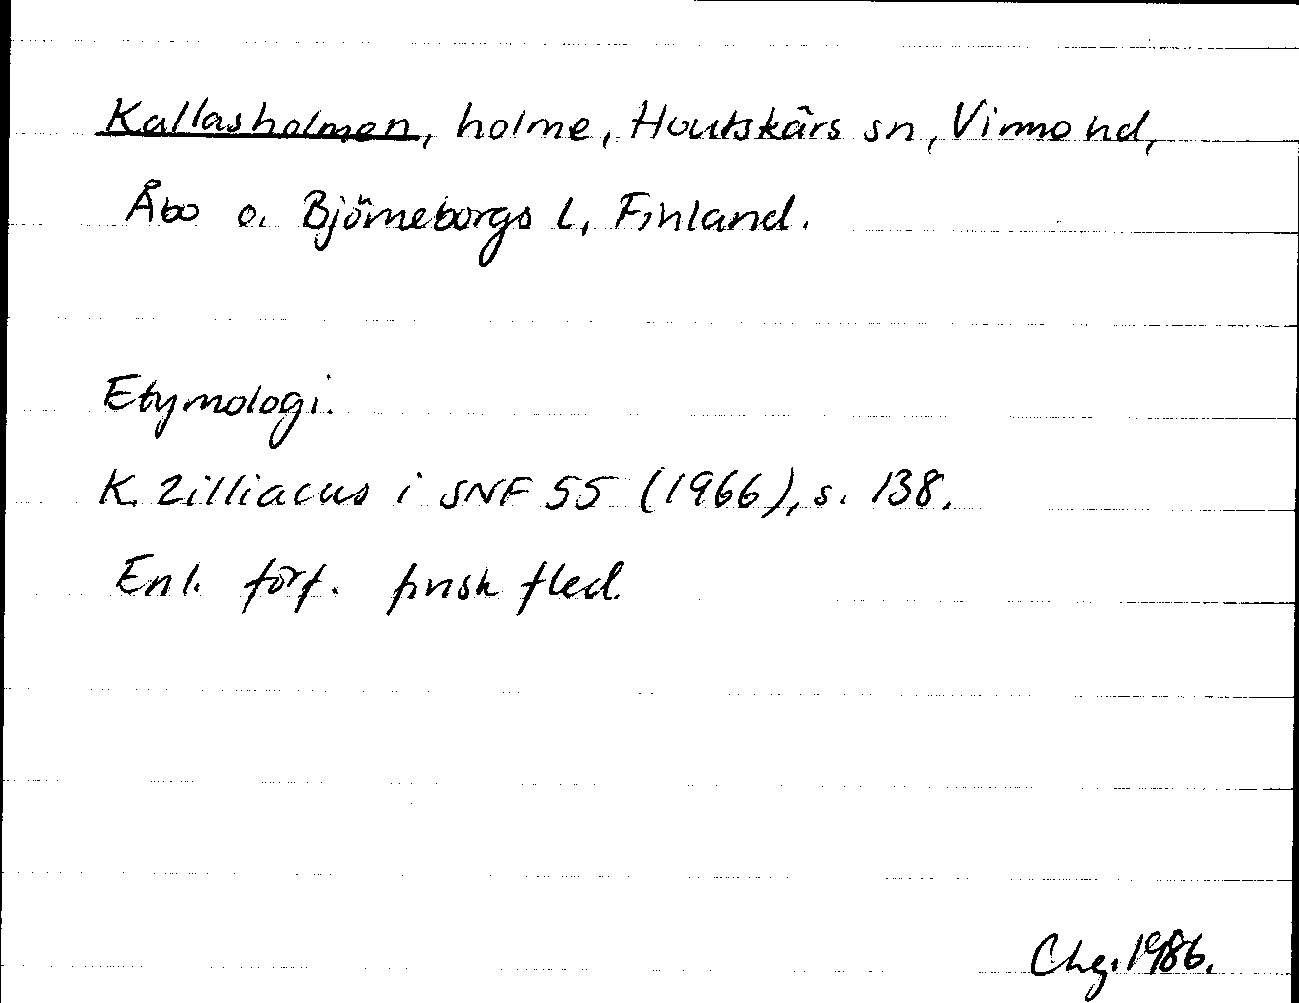 Kallasholmen, holme, Houtskärs sn, Virmo hd,
Åbo o. Björneborgs l, Finland.
Etymologi.
K. Zilliacus i SNF 55 (1966), s. 138.
Enl. förf. finsk fled.
Chg. 1986.